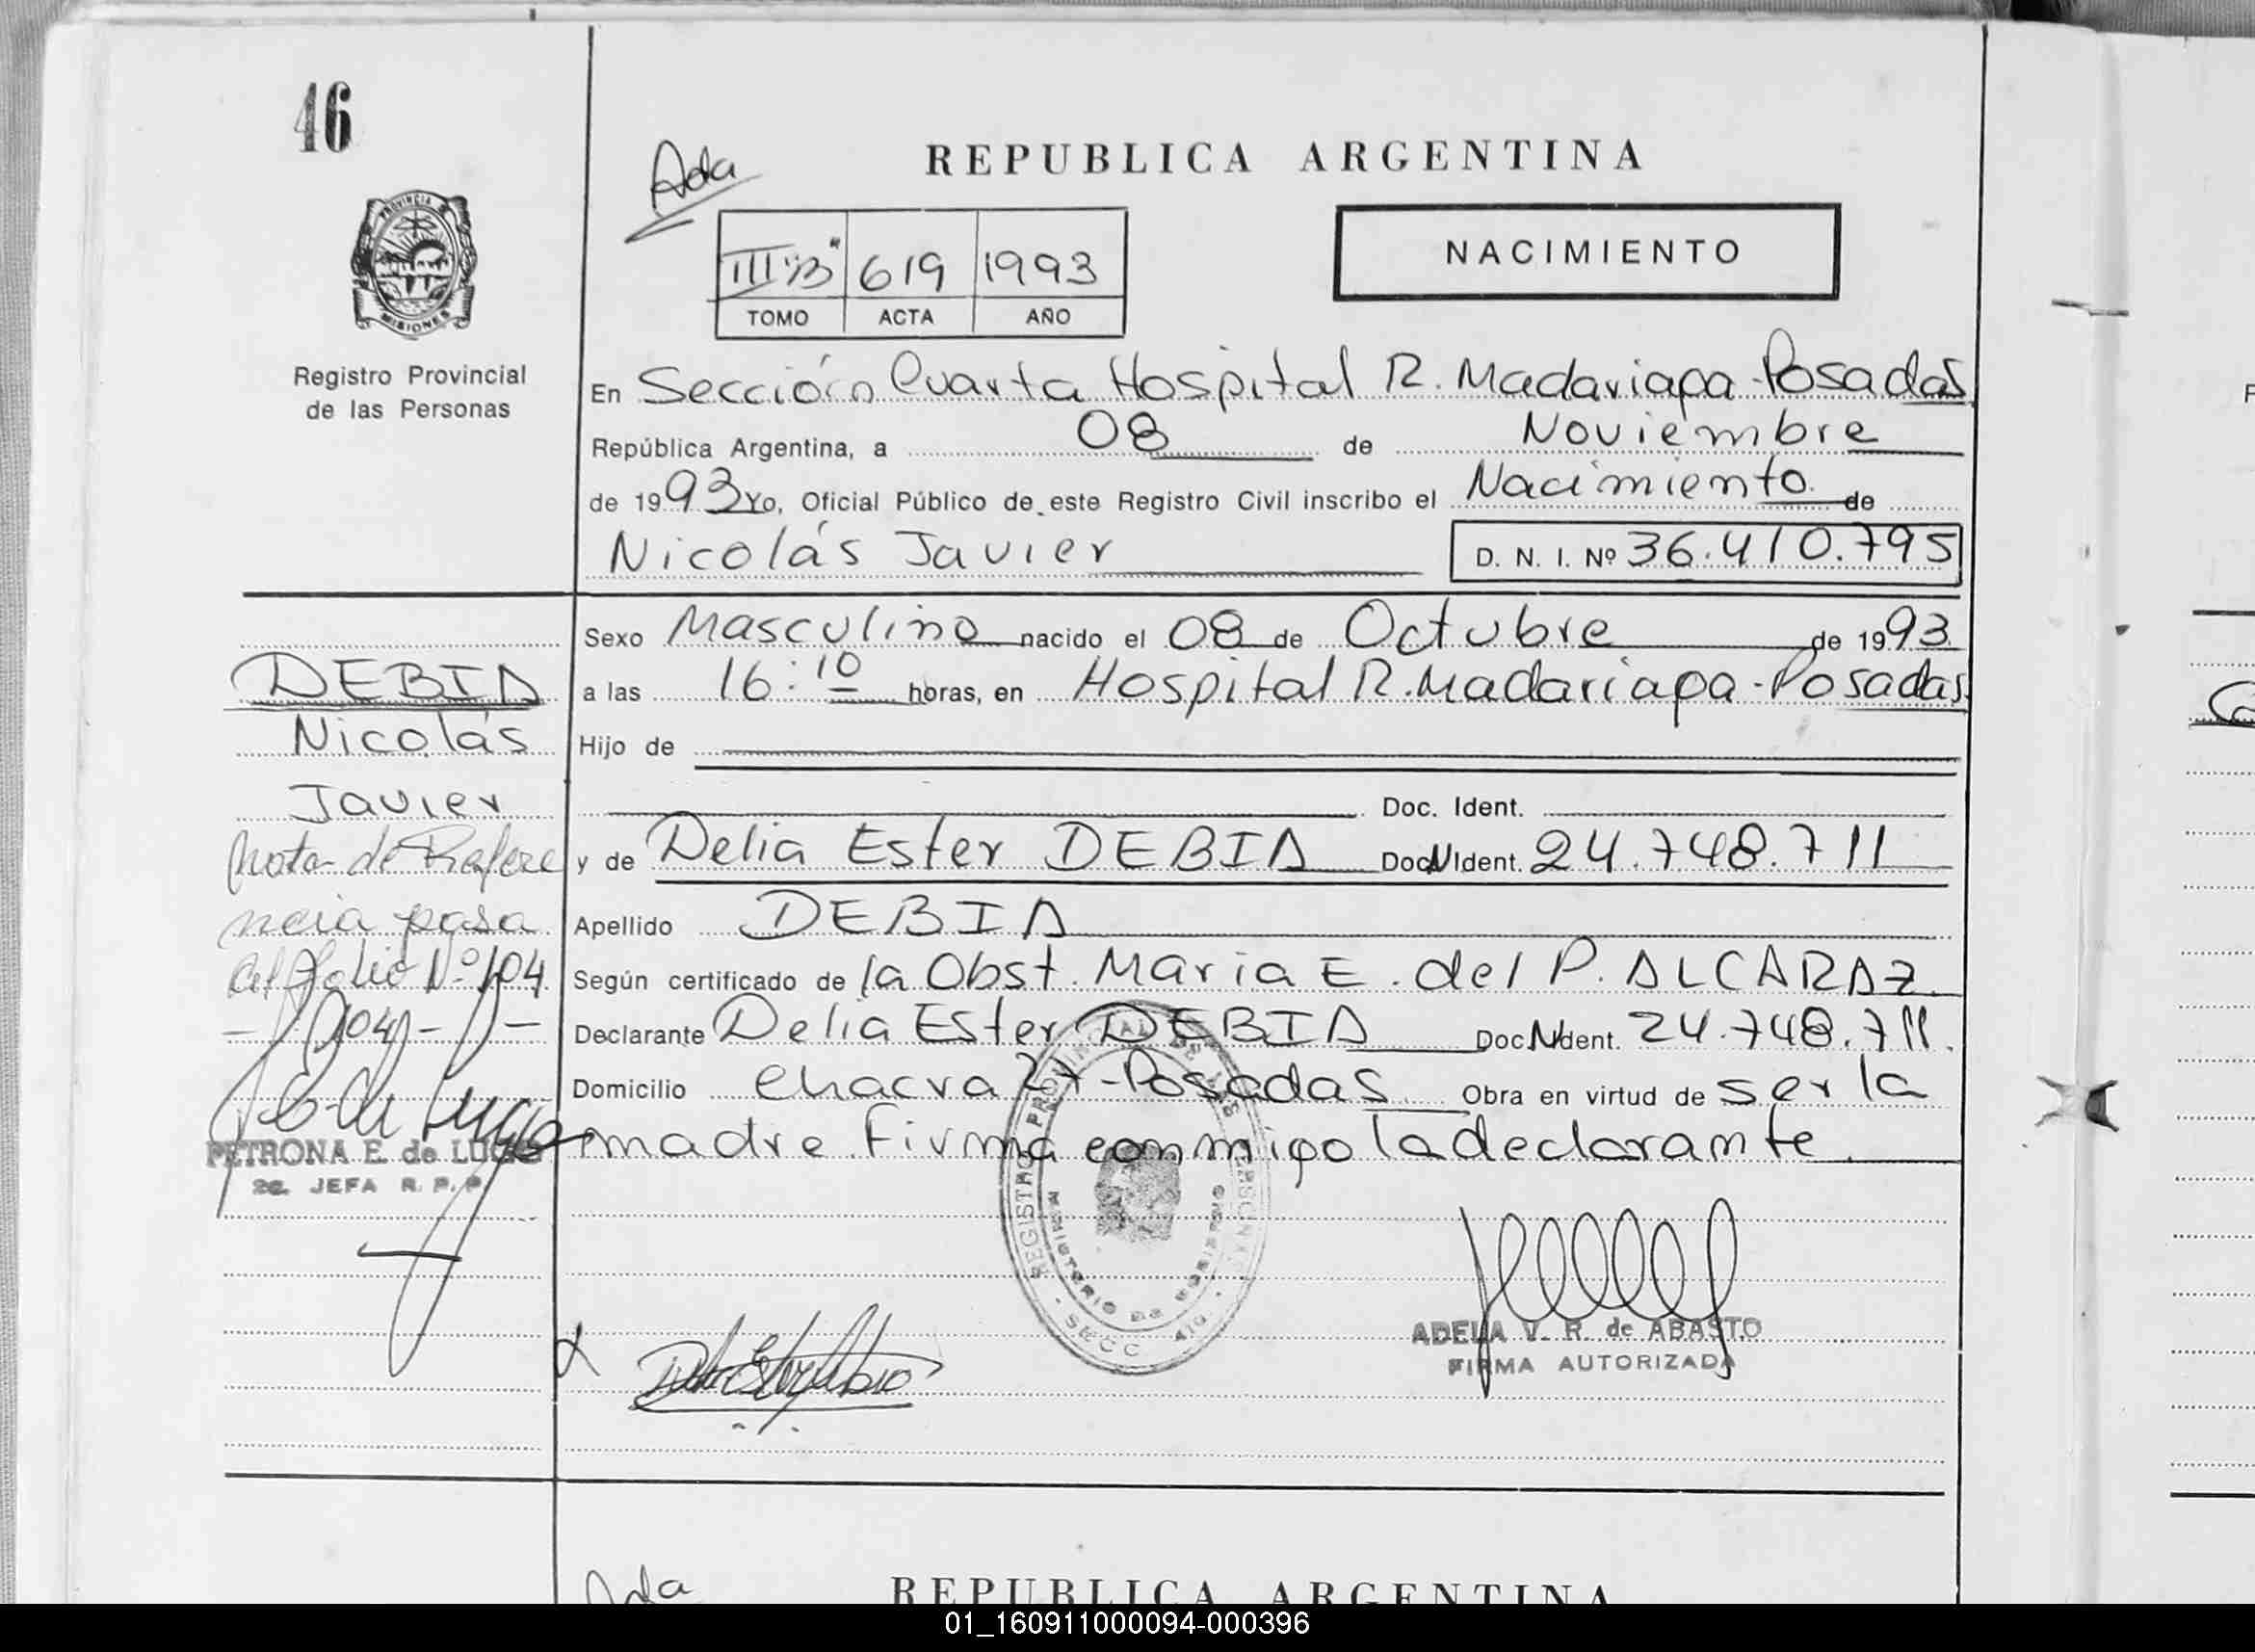 46
Ada
REPUBLICA ARGENTINA
PROVINCIA DE
MISIONES
Registro Provincial
de las Personas
III "B" 619 1993
TOMO ACTA AÑO
NACIMIENTO
En Sección Cuarta Hospital R. Madariaga - Posadas
República Argentina, a 08 de Noviembre
de 1993 Yo, Oficial Público de este Registro Civil inscribo el Nacimiento de
Nicolás Javier D. N. I. Nº 36.410.795
Sexo Masculino nacido el 08 de Octubre de 1993
a las 16:10 horas, en Hospital R. Madariaga - Posadas
Hijo de
Doc. Ident.
y de Delia Ester DEBIA Doc. Ident. 24.748.711
Apellido DEBIA
Según certificado de la Obst. María E. del P. ALCARAZ
Declarante Delia Ester DEBIA Doc. Ident. 24.748.711.
Domicilio chacra - Posadas Obra en virtud de ser la
madre. Firma conmigo la declarante.
DEBIA
Nicolás
Javier
Nota de Refere
ncia pasa
al folio Nº 104
PETRONA E. de LUGO
JEFA R. P. P.
REGISTRO PROVINCIAL DE LAS PERSONAS
MINISTERIO DE GOBIERNO
SECC 4ta.
ADELA V. R. de ABASTO
FIRMA AUTORIZADA
Ada
REPUBLICA ARGENTINA
01_160911000094-000396